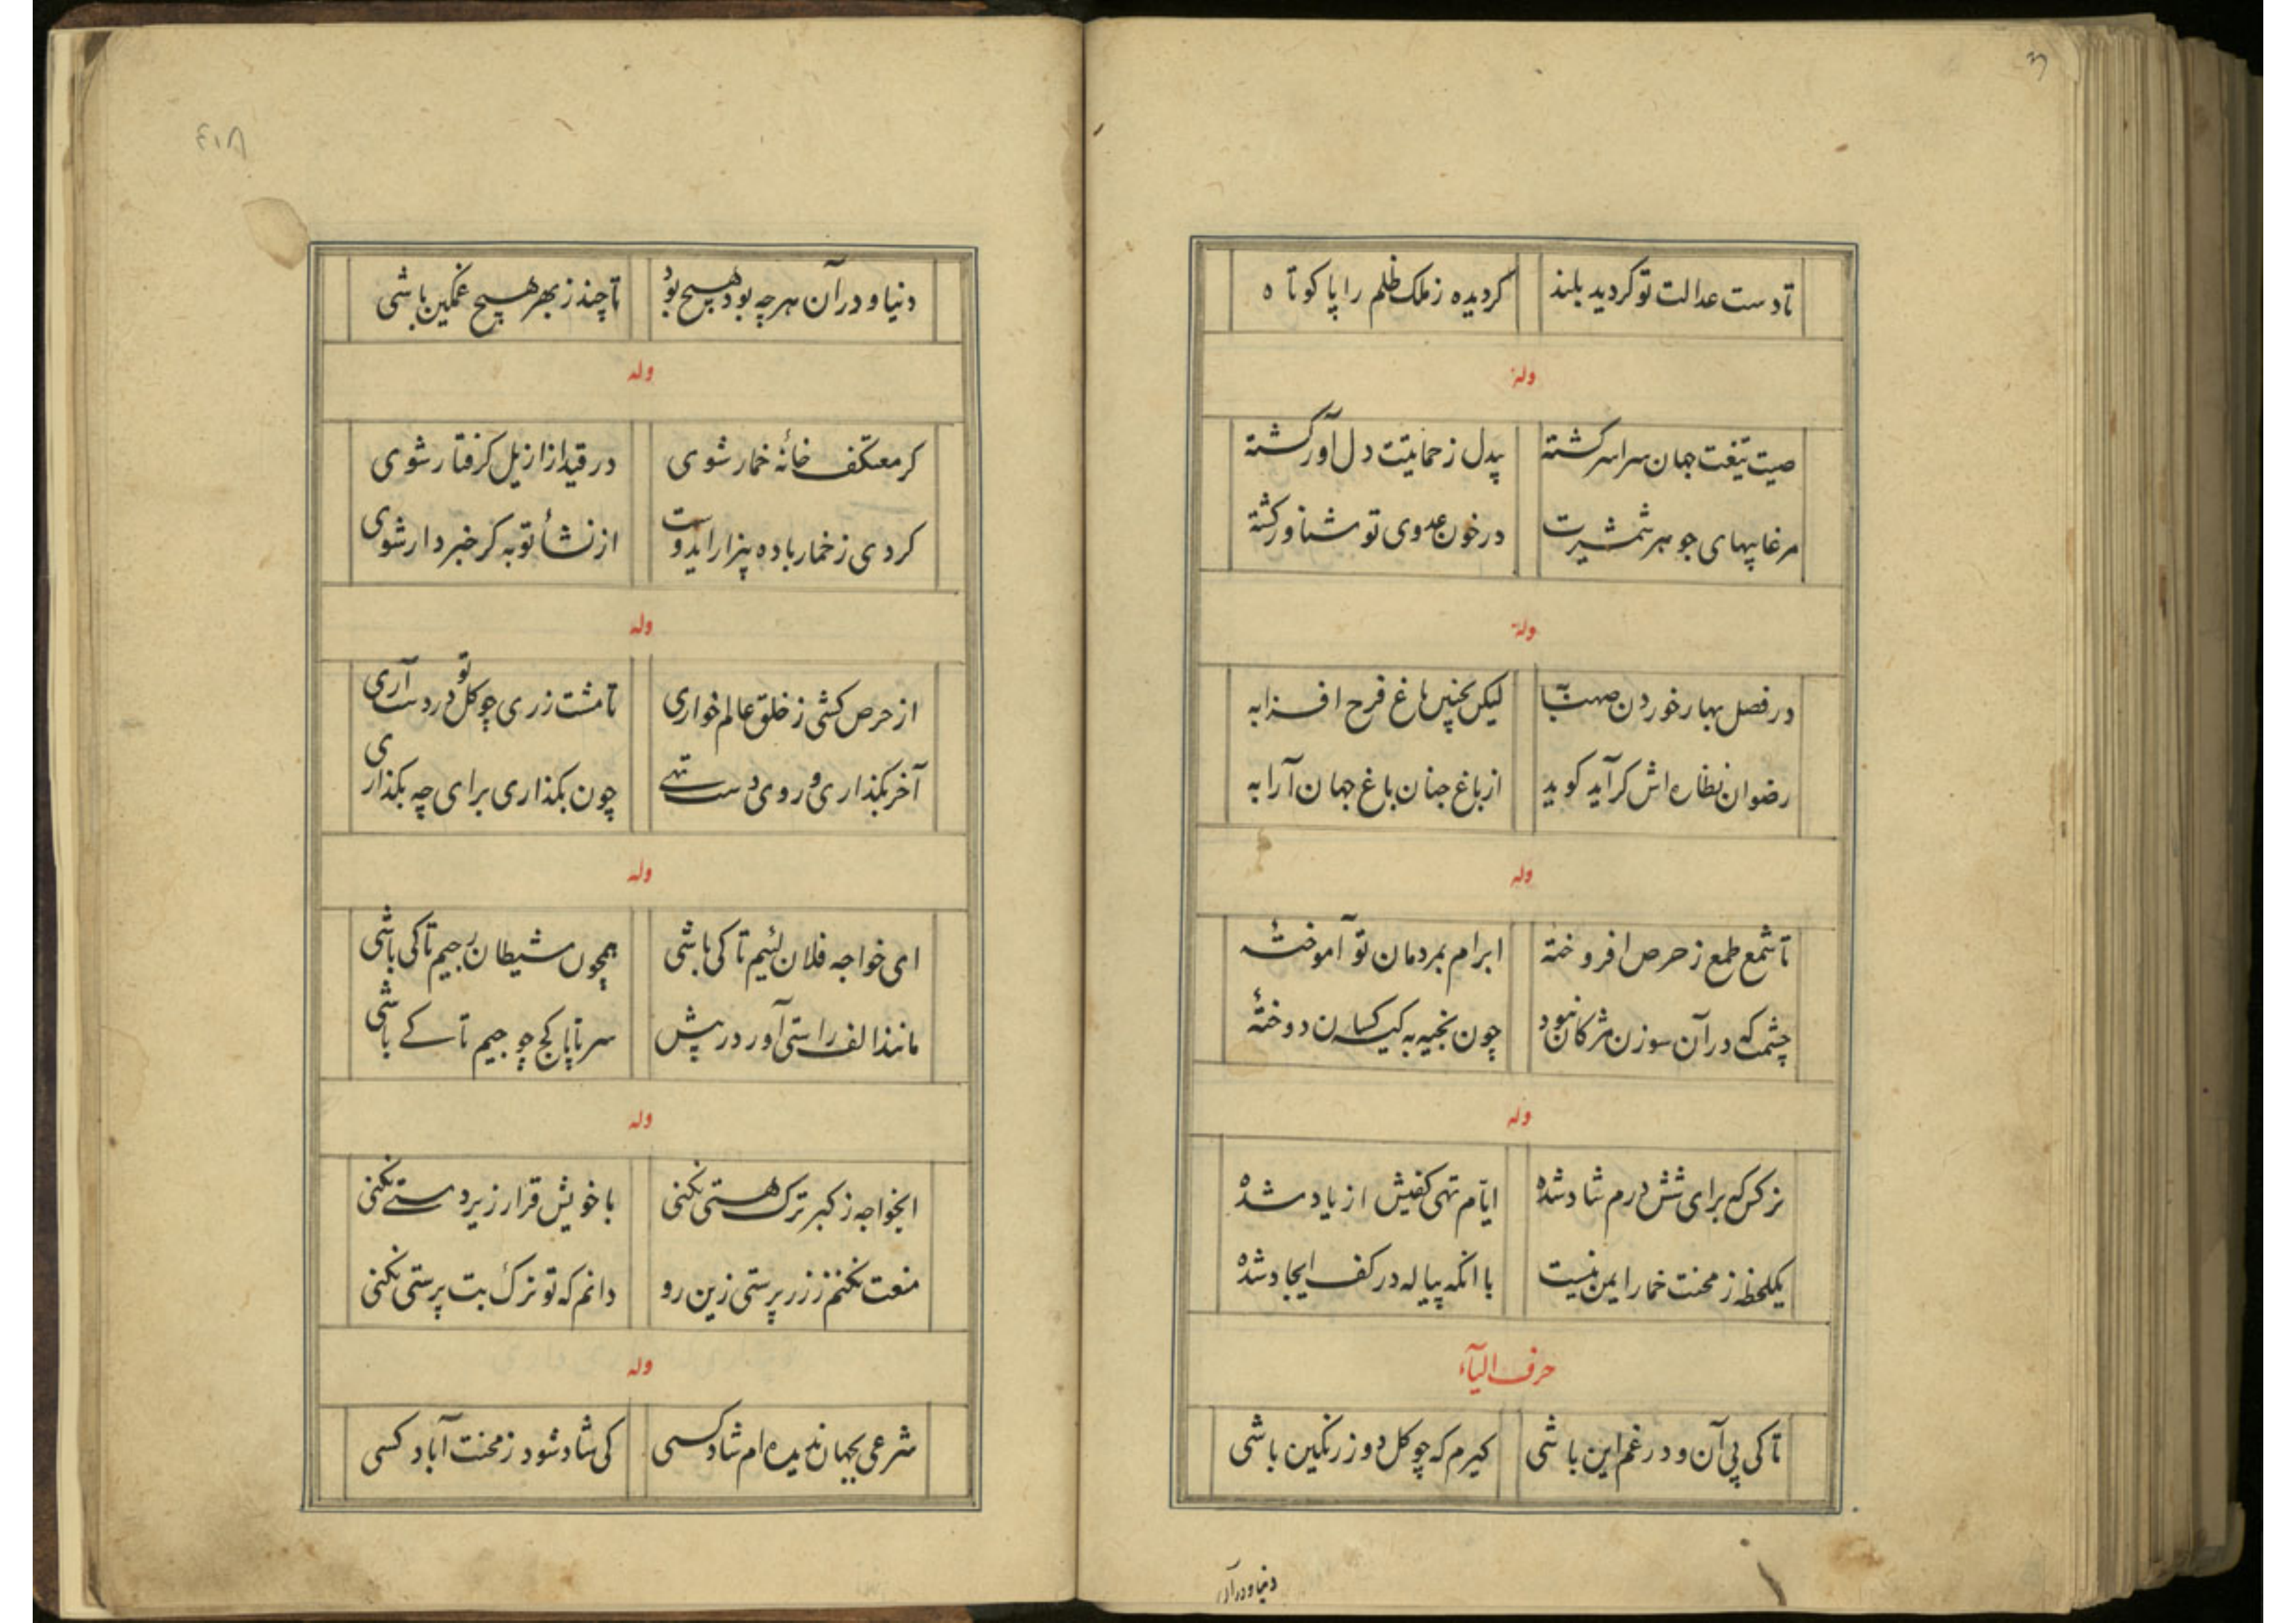 تا دست عدالت تو گردید بلند گردیده ز ملک ظلم را پا کوتاه
وله
صیت تیغت جهان سراسر گشته بیدل ز حمایتت دل آور گشته
مرغابیهای جوهر شمشیرت در خون عدوی تو شناور گشته
وله
در فصل بهار خوردن صهبا به لیکن بچنین باغ فرح افزا به
رضوان بنظاره اش گر آید گوید از باغ جنان باغ جهان آرا به
وله
تا شمع طمع ز حرص افروخته ابرام بمردمان تو آموختهٔ
چشمت که در آن سوزن مژگان نبود چون بخیه به کیسه دوختهٔ
وله
نرگس که برای شش درم شاد شده ایام تهی کفیش از یاد شده
یکلحظه ز محنت خمار ایمن نیست با انکه پیاله در کف ایجاد شده
حرف الیآء
تا کی پی آن و در غم این باشی گیرم که چو گل دو روز رنگین باشی
دنیا و در آن
٤١٨
دنیا و در آن هر چه بود هیچ بود تا چند ز بهر هیچ غمگین باشی
وله
گر معتکف خانهٔ خمار شوی در قید ازازیل گرفتار شوی
گردی ز خمار باده بیزار ایدوست از نشأ توبه گر خبردار شوی
وله
از حرص کشی ز خلق عالم خواری تا مشت زری چو گل تو در دست آری
آخر بگذاری و روی دست تهی چون بگذاری برای چه بگذاری
وله
ای خواجه فلان لئیم تا کی باشی همچون شیطان رجیم تا کی باشی
مانند الف راستی آور در پیش سر تا پا کج چو جیم تا کے باشی
وله
ایخواجه ز کبر ترک هستی نکنی با خویش قرار زیردستے نکنی
منعت نکنم ز زر پرستی زین رو دانم که تو ترک بت پرستی نکنی
وله
شرعی بجهان ندیده ام شاد کسی کی شاد شود ز محنت آباد کسی